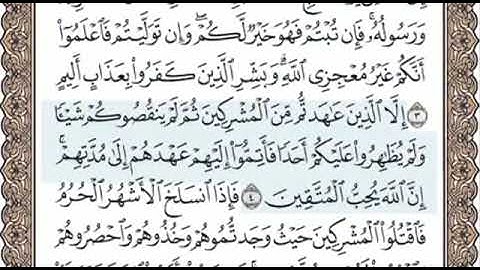 وَرَسُولُهُۥۚ فَإِن تُبۡتُمۡ فَهُوَ خَيۡرٌ لَّكُمۡۖ وَإِن تَوَلَّيۡتُمۡ فَٱعۡلَمُوٓا۟
أَنَّكُمۡ غَيۡرُ مُعۡجِزِي ٱللَّهِۗ وَبَشِّرِ ٱلَّذِينَ كَفَرُوا۟ بِعَذَابٍ أَلِيمٍ
٣ إِلَّا ٱلَّذِينَ عَٰهَدتُّم مِّنَ ٱلۡمُشۡرِكِينَ ثُمَّ لَمۡ يَنقُصُوكُمۡ شَيۡـٔٗا
وَلَمۡ يُظَٰهِرُوا۟ عَلَيۡكُمۡ أَحَدٗا فَأَتِمُّوٓا۟ إِلَيۡهِمۡ عَهۡدَهُمۡ إِلَىٰ مُدَّتِهِمۡۚ
إِنَّ ٱللَّهَ يُحِبُّ ٱلۡمُتَّقِينَ ٤ فَإِذَا ٱنسَلَخَ ٱلۡأَشۡهُرُ ٱلۡحُرُمُ
فَٱقۡتُلُوا۟ ٱلۡمُشۡرِكِينَ حَيۡثُ وَجَدتُّمُوهُمۡ وَخُذُوهُمۡ وَٱحۡصُرُوهُمۡ